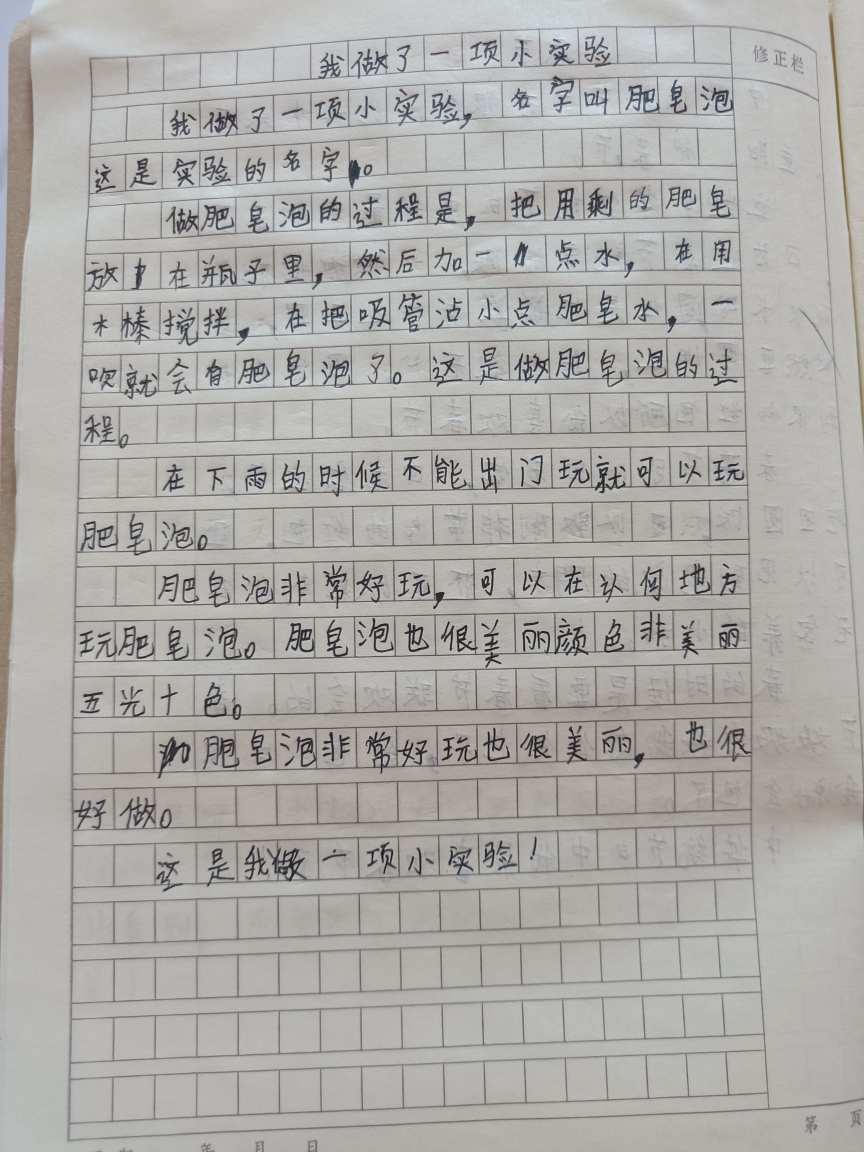 我做了一项小实验
修正栏
我做了一项小实验，名字叫肥皂泡
这是实验的名字。
做肥皂泡的过程是，把用剩的肥皂
放在瓶子里，然后加一点水，在用
木榛搅拌，在把吸管沾小点肥皂水，一
吹就会有肥皂泡了。这是做肥皂泡的过
程。
在下雨的时候不能出门玩就可以玩
肥皂泡。
肥皂泡非常好玩，可以在认何地方
玩肥皂泡。肥皂泡也很美丽颜色非美丽
五光十色。
肥皂泡非常好玩也很美丽，也很
好做。
这是我做一项小实验！
第 页
年 月 日